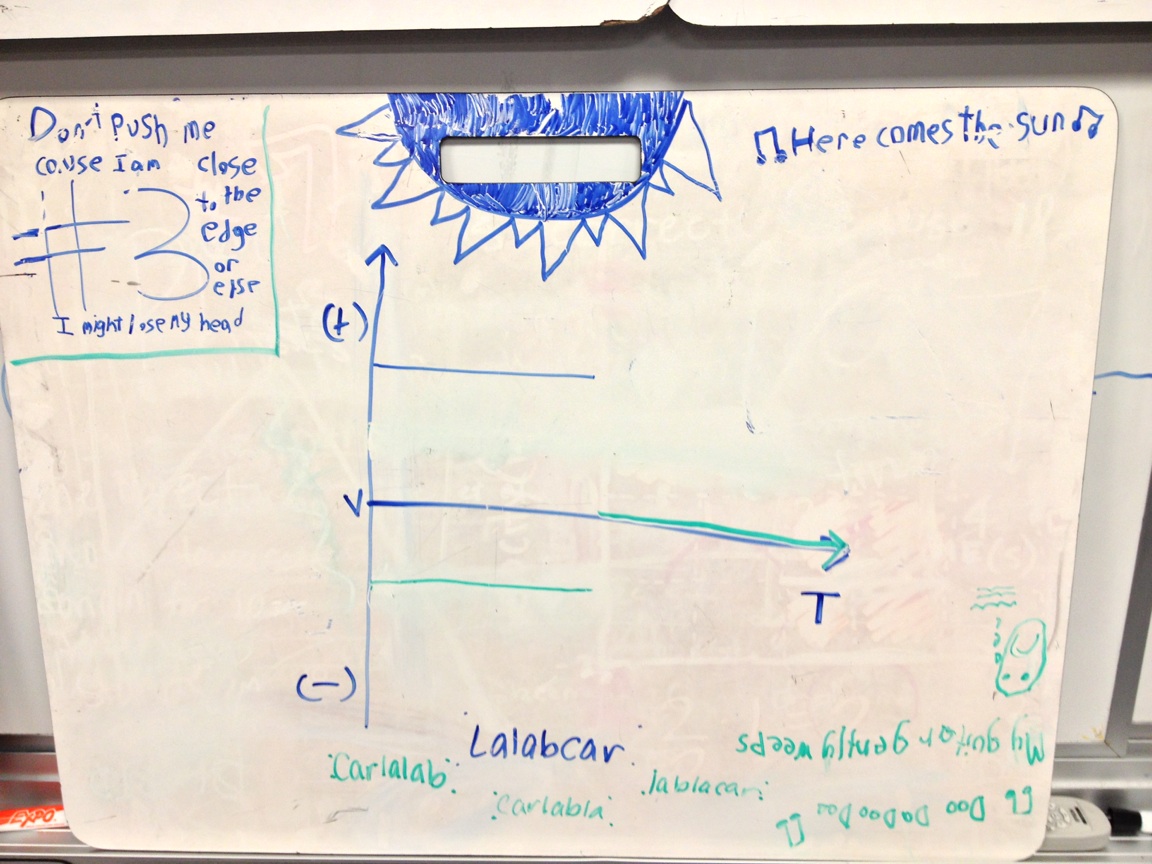 Don't Push me
cause I am close
to the
edge
#3
or
else
I might lose my head
♫ Here comes the sun ♫
(+)
V
T
(-)
Lalabcar
Carlalab
Carlabla
lablacar
My guitar gently weeps
Doo Da Doo Doo
EXPO